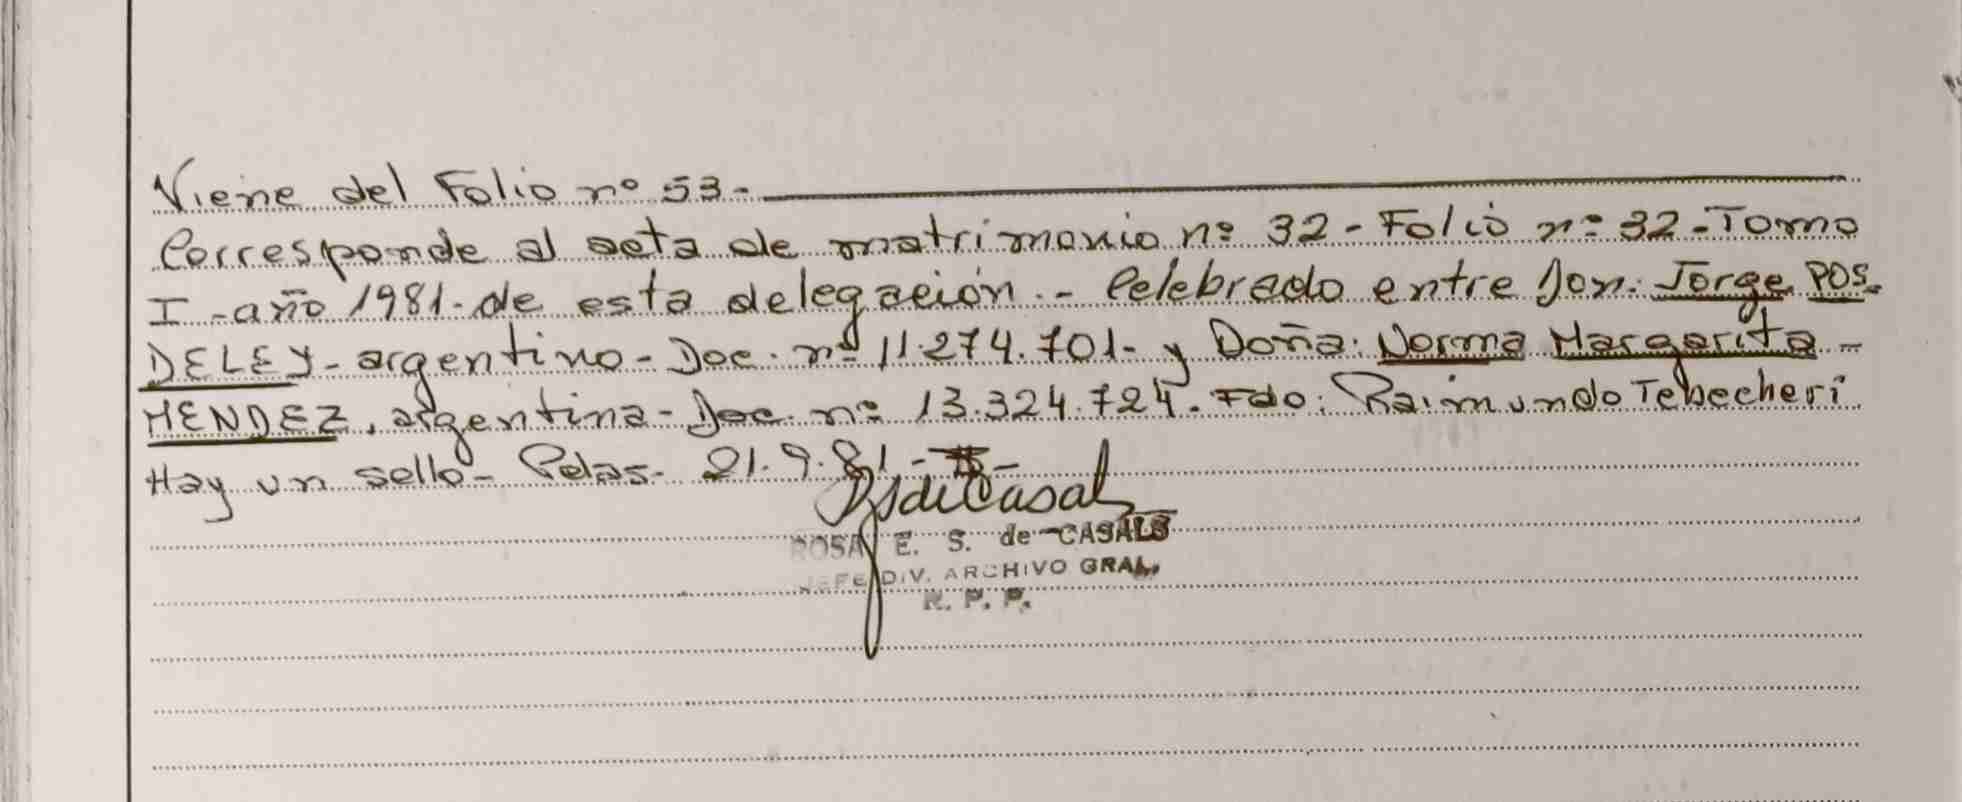 Viene del Folio nº 53-
Corresponde al acta de matrimonio nº 32 - Folio nº 32 - Tomo
I - año 1981 - de esta delegación .- Celebrado entre Don: Jorge POS-
DELEY - argentino - Doc. nº 11.274.701 - y Doña: Norma Margarita -
MENDEZ, argentina - Doc. nº 13.324.724. Fdo: Raimundo Tebecheri
Hay un sello - Pdas - 21.9.81.-
ROSA E. S. de CASALS
JEFE DIV. ARCHIVO GRAL.
R. P. P.